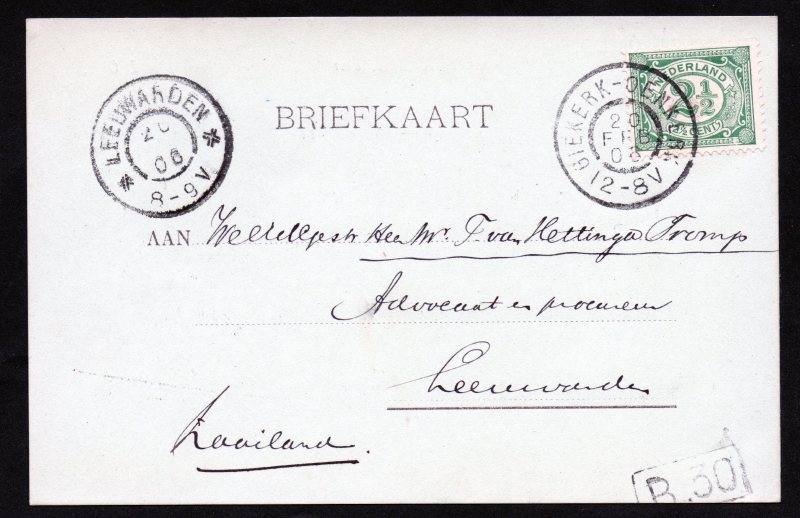 BRIEFKAART
LEEUWARDEN
20
06
8-9V
NEDERLAND
2½
2½ CENT
OENKERK
20
FEB
06
12-8V
AAN Weledelgestr Heer Mr. T. van Hettinga Tromp
Advocaat en procureur
Leeuwarden
Zaailand.
B.30